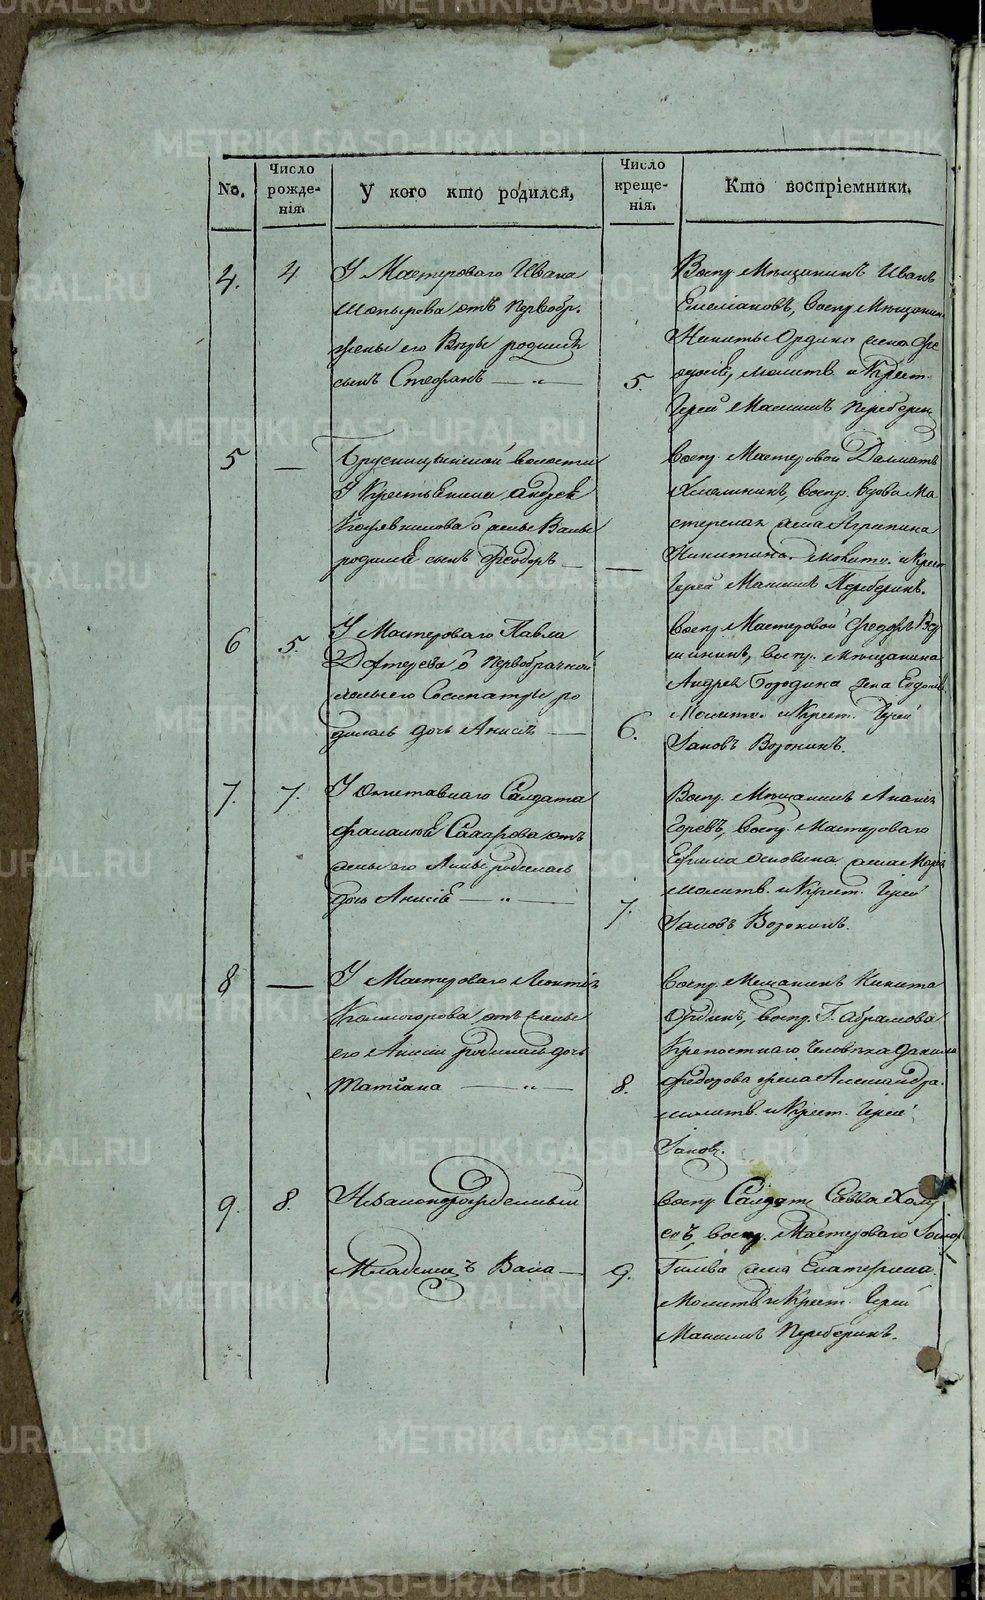 No.
Число рожде-
нія.
У кого кто родился,
Число креще-
нія.
Кто воспріемники.
4.
4
У Мастероваго Ивана
отъ первобр.
жены его Веры родился
сынъ Стефанъ — „ —
5.
Воспр. Мѣщанинъ Иванъ
Емелiановъ, воспр. Мѣщанина
Никиты Ордина жена Ѳе
досiя, молитв. и Крест.
Iерей Максимъ Переберинъ
5
—
волости
У Крестьянина Андрея
жены
родился сынъ Ѳеодоръ —
—
воспр. Мастеровой Далматъ
воспр. вдова Ма
стерская жена Агрипина
Никитина. молитв. и Крест.
Iерей Максимъ Переберинъ.
6
5.
У Мастероваго Павла
Дегтерева о первобрачной
жены его Сосипатры ро
дилась дочь Анисiя —
6.
воспр. Мастеровой Ѳедоръ
воспр. Мѣщанина
Андрея Бородина жена Евдокiя.
Молитв. и Крест. Iерей
Iаковъ Воронинъ.
7.
7.
У Отставнаго Салдата
Сахарова отъ
жены его Анны родилась
дочь Анисiя — „ —
7.
Воспр. Мѣщанинъ Ананiя
Горевъ, воспр. Мастероваго
Ефима Осповина жена Марiя
молитв. и Крест. Iерей
Iаковъ Воронинъ.
8
—
У Мастероваго Леонтiя
Колмогорова отъ жены
его Анисiи родилась дочь
Татiана — „ —
8.
воспр. Мещанинъ Никита
Ординъ, воспр. Г. Абрамова
Крепостнаго человѣка Данила
Ѳедорова жена Александра.
молитв. и Крест. Iерей
Iаковъ.
9.
8.
Незаконорожденный
Младенецъ Вана —
9.
воспр. Салдатъ Савва
воспр. Мастероваго
Гилева жена Екатерина.
Молитв. и Крест. Iерей
Максимъ Переберинъ.
METRIKI.GASO-URAL.RU